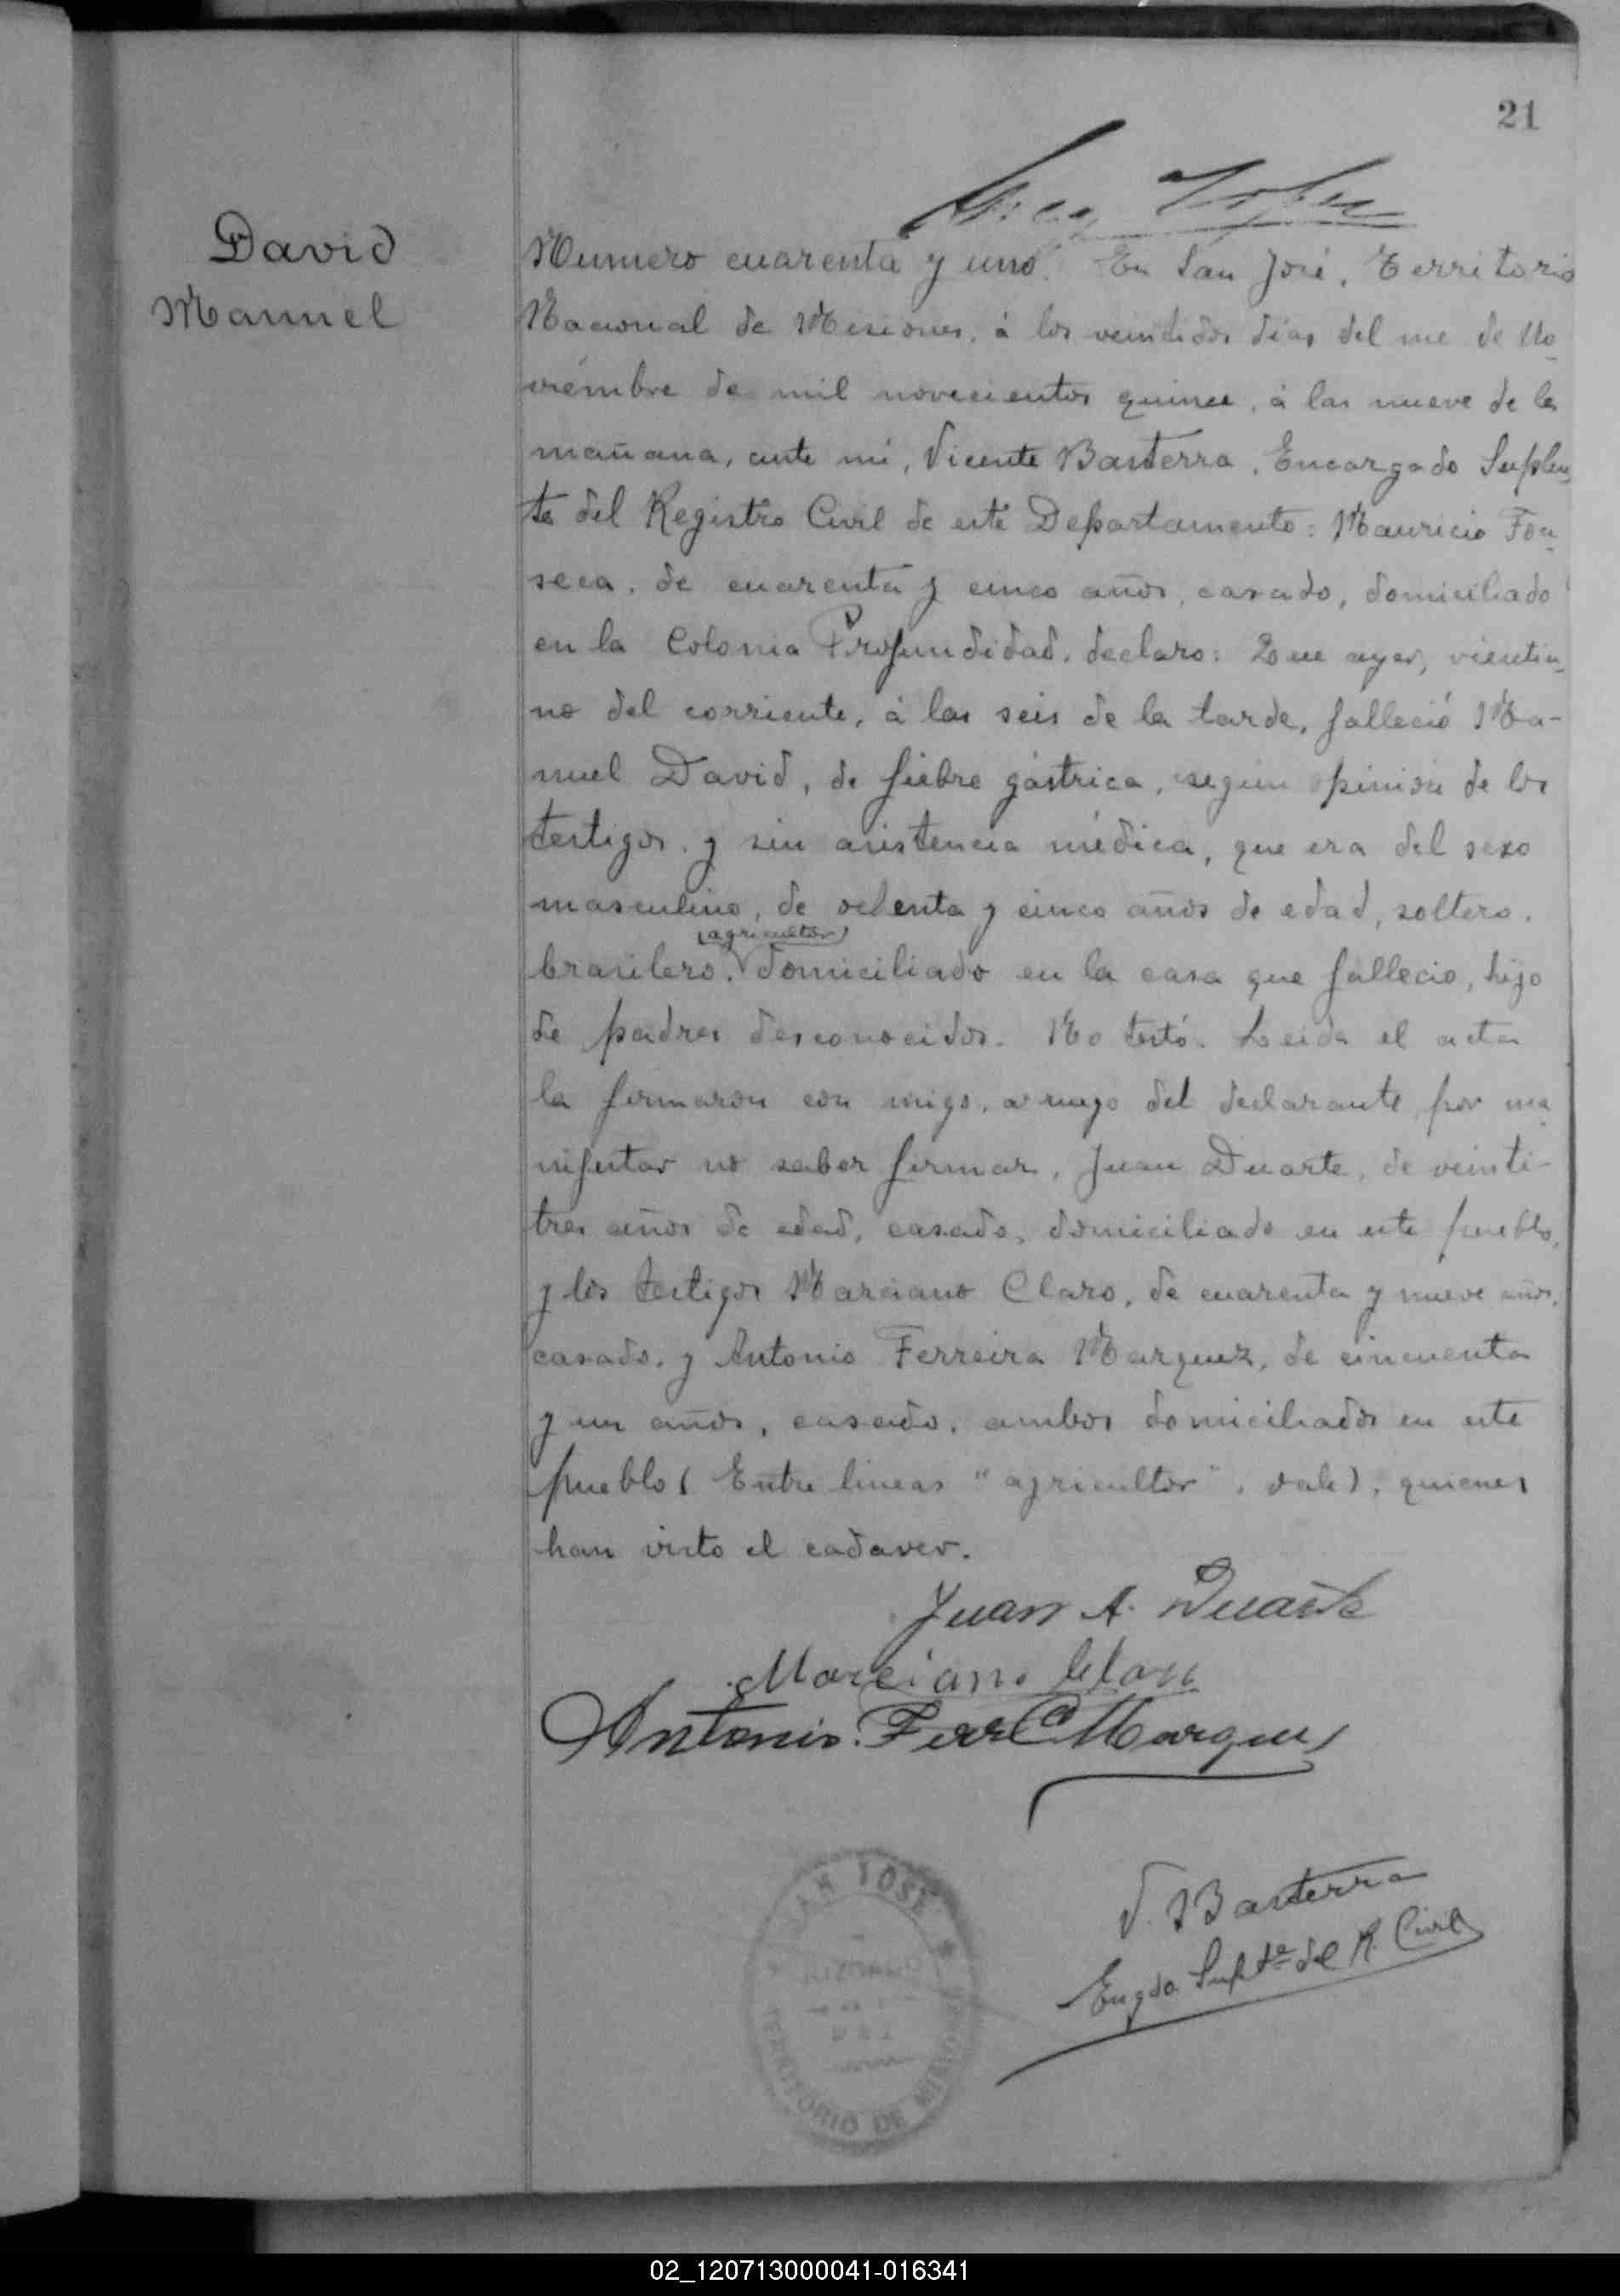 21
David
Manuel
Numero cuarenta y uno. En San José, Territorio
Nacional de Misiones, á los veintidos dias del me de No
viembre de mil novecientos quince, á las nueve de la
mañana, ante mi, Vicente Basterra, Encargado Suplen
te del Registro Civil de este Departamento: Mauricio Fon
seca, de cuarenta y cinco años, casado, domiciliado
en la Colonia Profundidad, declaro: Que ayer, vientiu
no del corriente, á las seis de la tarde, falleció Ma-
nuel David, de fiebre gástrica, según opinión de los
testigos, y sin asistencia médica, que era del sexo
masculino, de ochenta y cinco años de edad, soltero,
(agricultor)
brasilero, domiciliado en la casa que fallecio, hijo
de padres desconocidos. No testó. Leida el acta
la firmaron con migo, a ruego del declarante, por ma
nifestar no saber firmar, Juan Duarte, de veinti-
tres años de edad, casado, domiciliado en este pueblo,
y los testigos Marciano Claro, de cuarenta y nueve años,
casado, y Antonio Ferreira Marquez, de cincuenta
y un años, casado, ambos domiciliados en este
pueblo (Entre lineas "agricultor", vale), quienes
han visto el cadaver.
Juan A. Duarte
Marciano Claro
Antonio Ferra Marques
V. Basterra
Engdo Suplte del R. Civil
SAN JOSÉ
TERRITORIO DE MISIONES
02_120713000041-016341